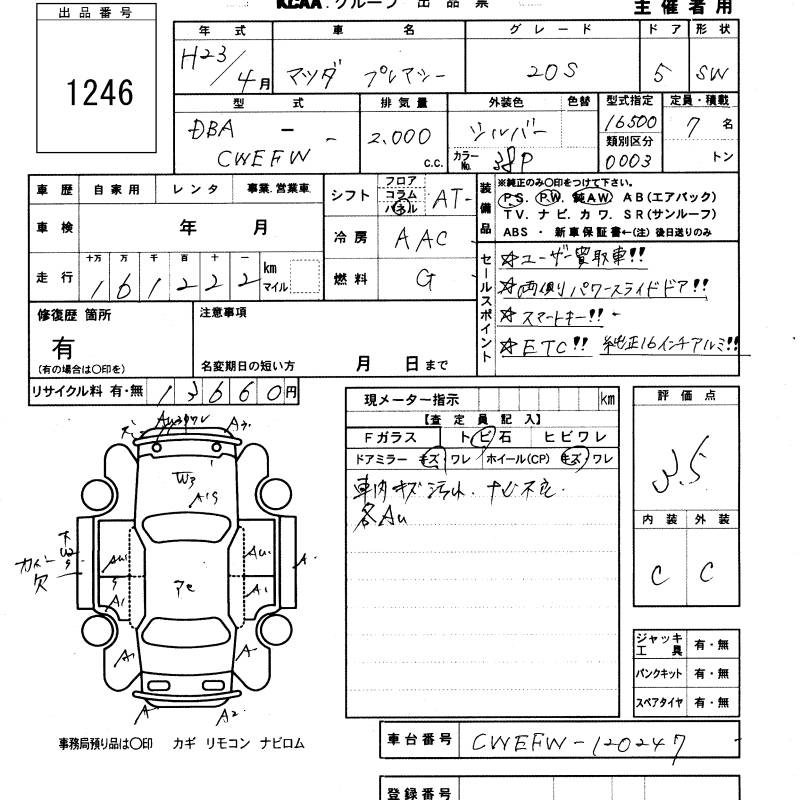 KCAA グループ 出品票
主催者用
出品番号
1246
年式 車名 グレード ドア 形状
H23/4月 マツダ プレマシー 20S 5 SW
型式 排気量 外装色 色替 型式指定 定員・積載
DBA - CWEFW - 2,000 c.c. シルバー カラーNo. 38P 16500 7 名
類別区分 0003 トン
車歴 自家用 レンタ 事業.営業車
車検 年 月
走行 十万 万 千 百 十 一 km マイル
161222
シフト フロア コラム パネル AT-
冷房 AAC
燃料 G
装備品 ※純正のみ〇印をつけて下さい。
P.S. P.W. 純AW. AB(エアバック)
TV. ナビ. カワ. SR(サンルーフ)
ABS ・ 新車保証書←(注) 後日送りのみ
セールスポイント
☆ユーザー買取車!!
☆両側パワースライドドア!!
☆スマートキー!!
☆ETC!! 純正16インチアルミ!!
修復歴 箇所
有
(有の場合は〇印を)
注意事項
名変期日の短い方 月 日まで
リサイクル料 有・無 13660円
現メーター指示 km
【査定員記入】
Fガラス トビ石 ヒビワレ
ドアミラー キズ ワレ ホイール(CP) キズ ワレ
車内キズ汚れ. ナビ不良.
各Au
評価点
3.5
内装 外装
C C
A3
W3
A19
Au Au A
カバー欠
A1 A1
A A
A A2
ジャッキ工具 有・無
パンクキット 有・無
スペアタイヤ 有・無
事務局預り品は〇印 カギ リモコン ナビロム
車台番号 CWEFW-120247
登録番号